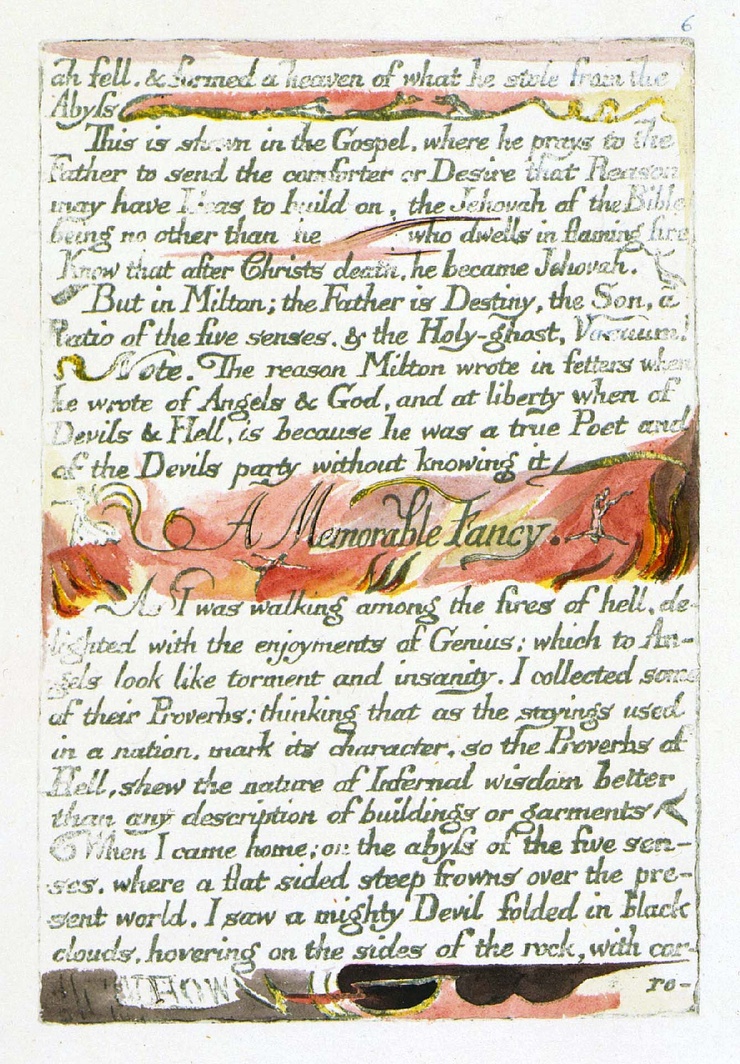 6
ah fell. & formed a heaven of what he stole from the
Abyss
This is shewn in the Gospel, where he prays to the
Father to send the comforter or Desire that Reason
may have Ideas to build on, the Jehovah of the Bible
being no other than he who dwells in flaming fire
Know that after Christs death, he became Jehovah.
But in Milton; the Father is Destiny, the Son, a
Ratio of the five senses. & the Holy-ghost, Vacuum!
Note. The reason Milton wrote in fetters when
he wrote of Angels & God, and at liberty when of
Devils & Hell, is because he was a true Poet and
of the Devils party without knowing it
A Memorable Fancy.
As I was walking among the fires of hell, de-
lighted with the enjoyments of Genius; which to An-
gels look like torment and insanity. I collected some
of their Proverbs: thinking that as the sayings used
in a nation, mark its character, so the Proverbs of
Hell, shew the nature of Infernal wisdom better
than any description of buildings or garments
When I came home; on the abyss of the five sen-
ses, where a flat sided steep frowns over the pre-
sent world. I saw a mighty Devil folded in black
clouds, hovering on the sides of the rock, with cor-
ro-
HOW